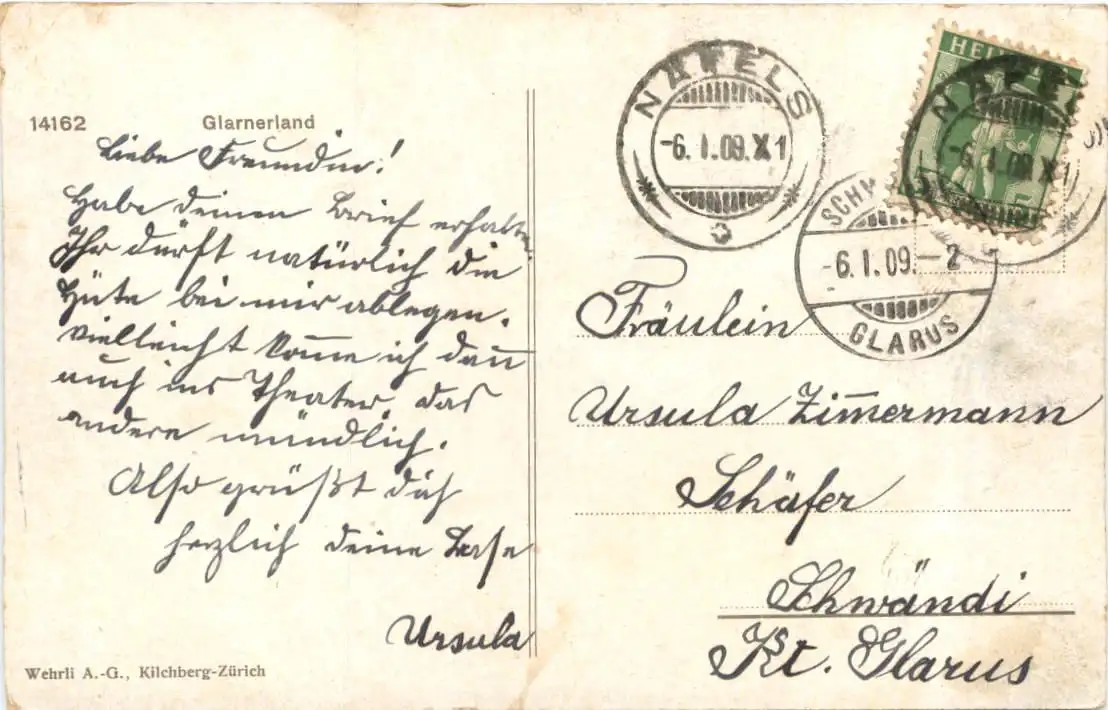 14162 Glarnerland
Liebe Freundin!
Habe deinen Brief erhalten.
Ihr dürft natürlich die
Hüte bei mir ablegen.
Vielleicht kom̅e ich dan̅
auch ins Theater, das
andere mündlich.
Also grüßt dich
herzlich deine Base
Ursula
Wehrli A.-G., Kilchberg-Zürich
NÄFELS
-6.I.09.XI
HELVE
NÄFEL
-6.I.09.XI
SCHW
-6.I.09.-2
GLARUS
Fräulein
Ursula Zim̅ermann
Schäfer
Schwändi
Kt. Glarus